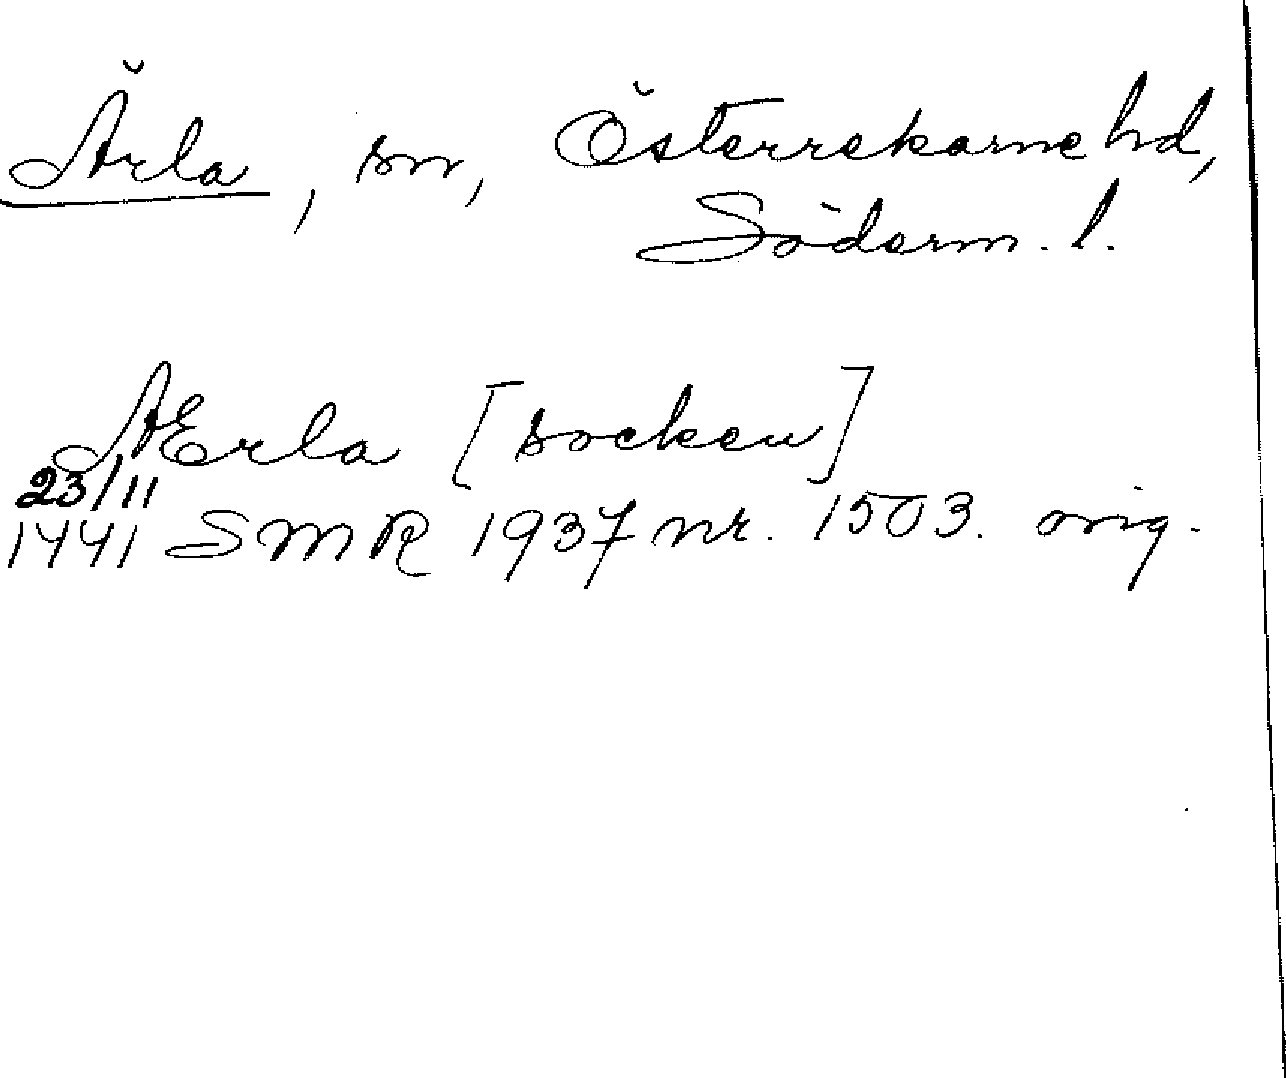 Ärla, sn, Österrekarne hd,
Söderm. l.
AErla [socken]
23/11
1441 SMR 1937 nr. 1503. orig.